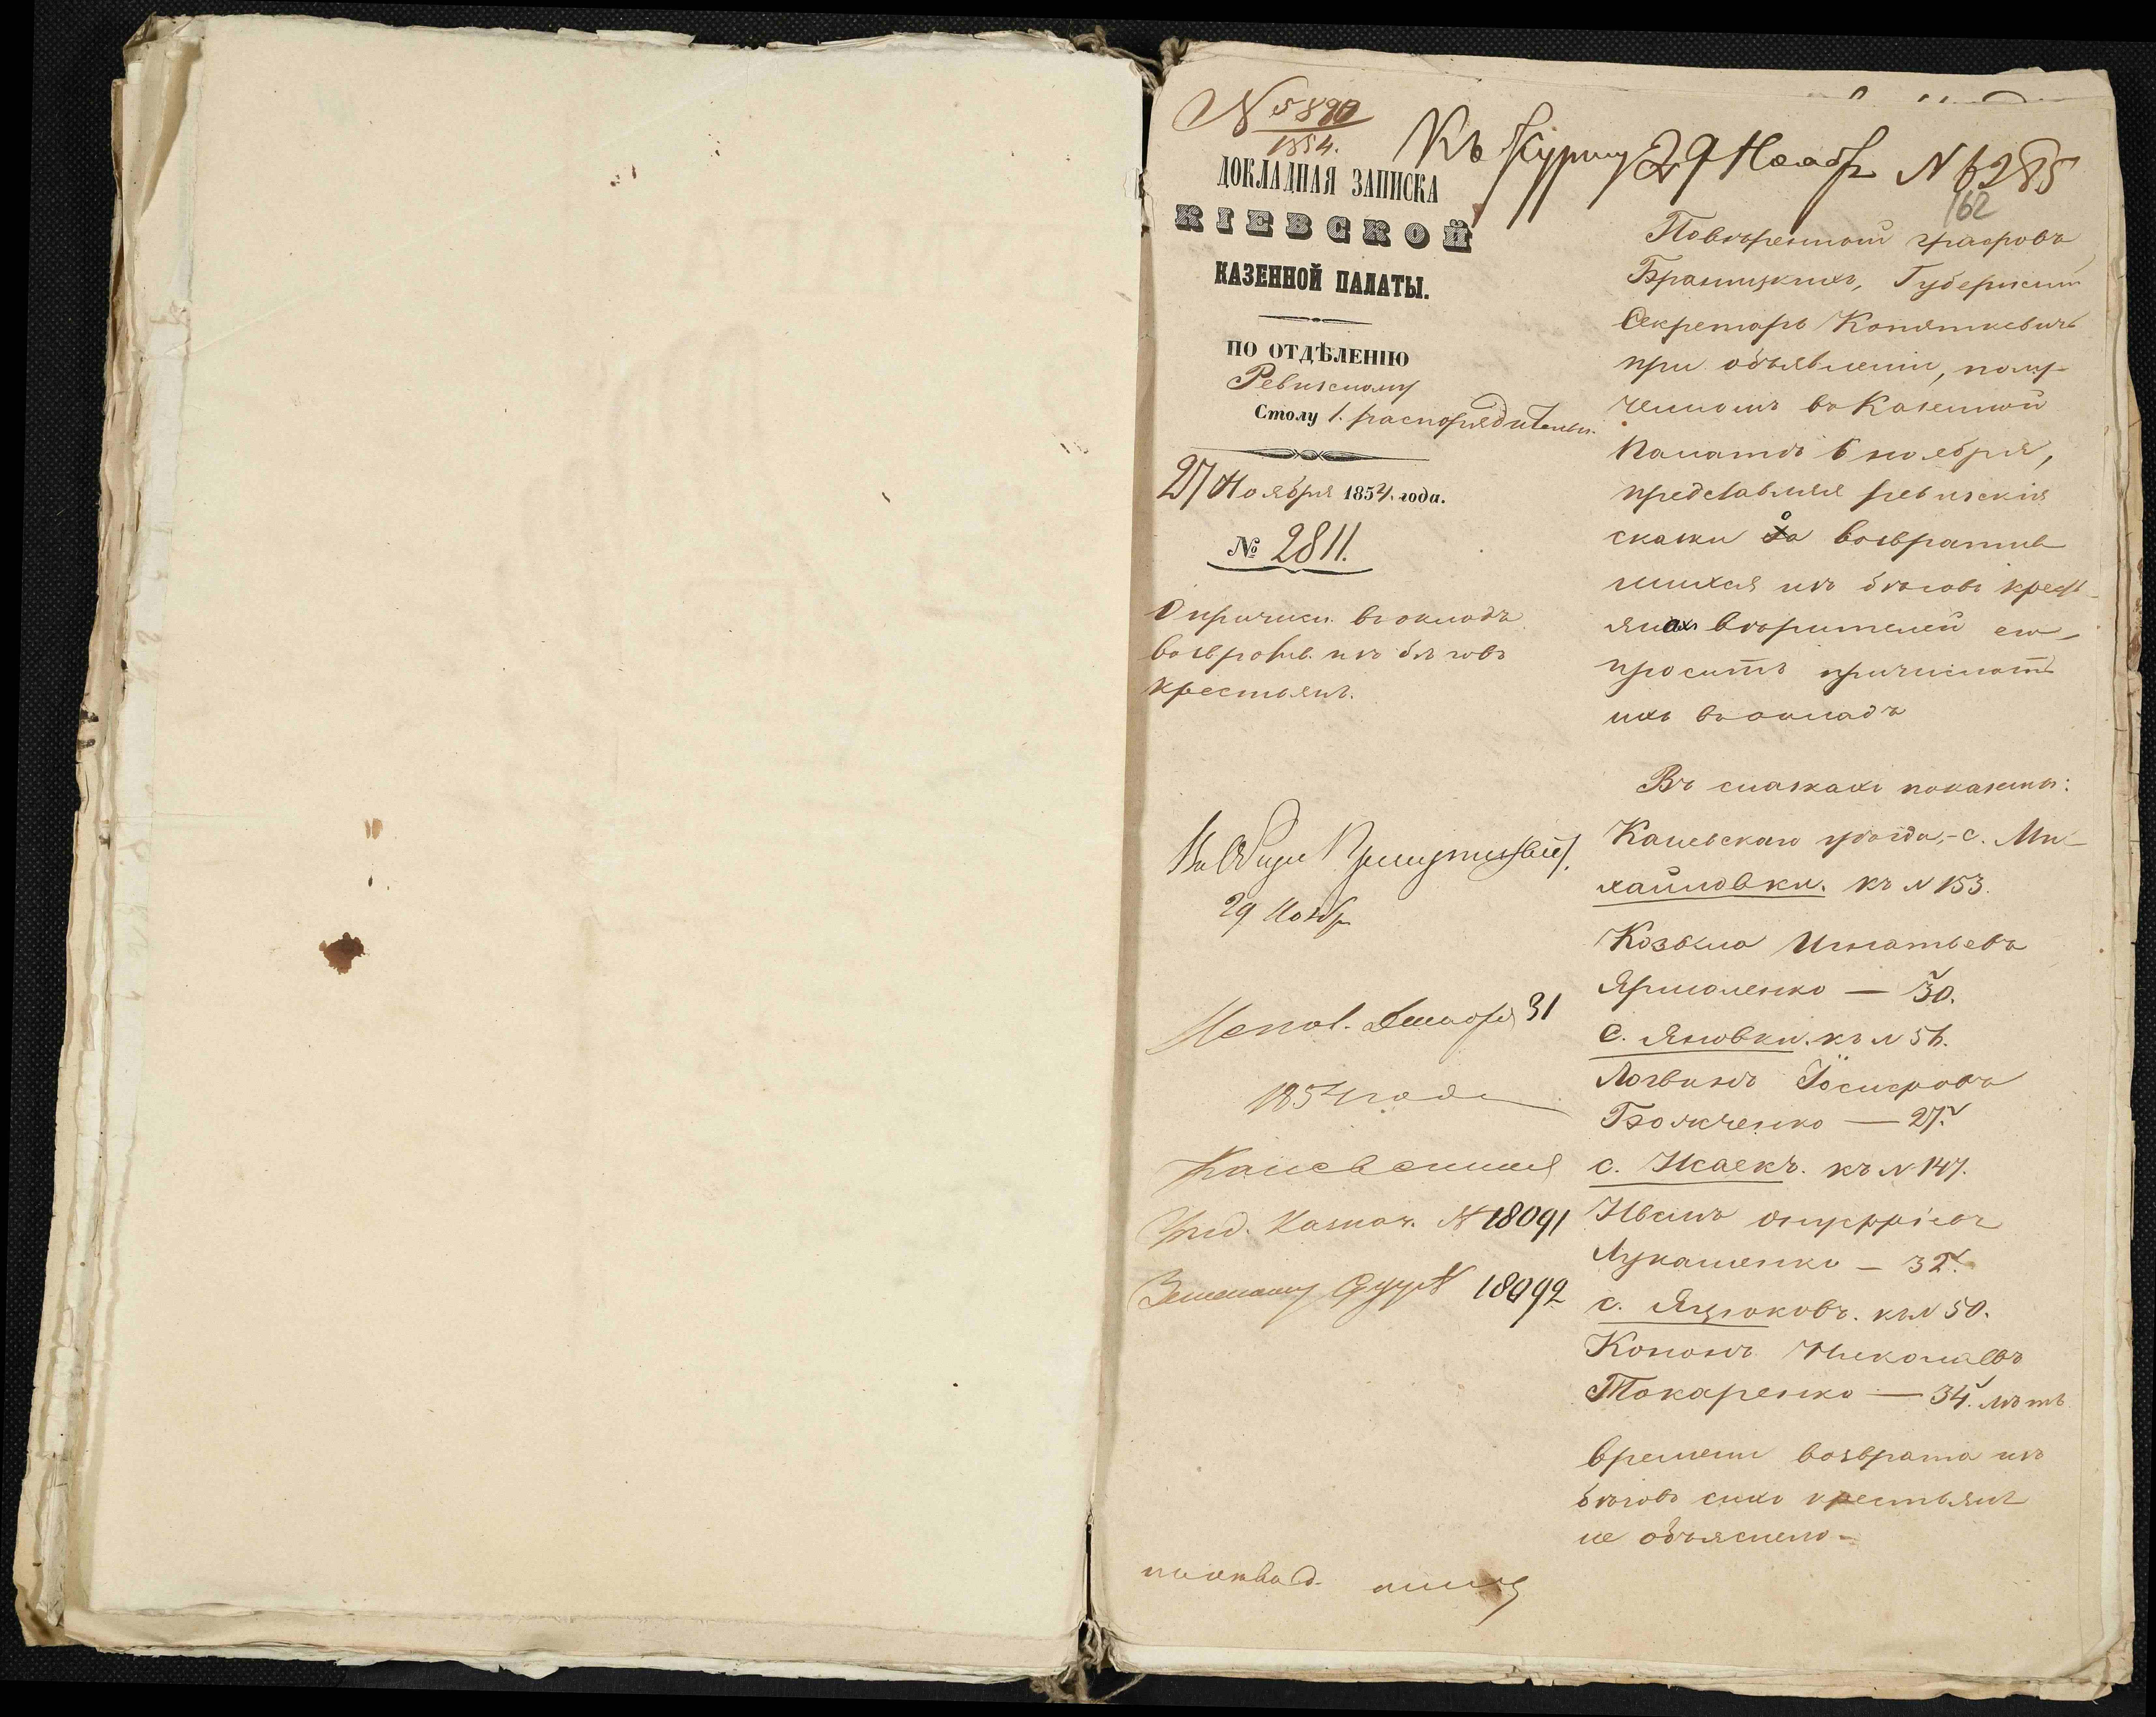 N 5890
1854.
Къ Журналу 29 Ноябр N 6285
162
ДОКЛАДНАЯ ЗАПИСКА
КІЕВСКОЙ
КАЗЕННОЙ ПАЛАТЫ.
ПО ОТДѢЛЕНІЮ
Ревизскому
Столу 1. распорядительн.
27 Ноября 1854. года.
№ 2811.
О причисл. въ окладъ
возвратив. изъ бѣговъ
крестьянъ.
29 Ноябр
Испол. Декабря 31
1854 года
Каневскому
Уѣзд. Казнач. N 18091
Земскому Суду N 18092
Повѣренный графовъ
Браницкихъ, Губернскій
Секретарь
при объявленіи, полу-
ченномъ въ Казенной
Палатѣ 6 ноября,
представляя ревизскія
сказки о возвратив
шихся изъ бѣговъ кресть-
янахъ вѣрителей его,
проситъ причислить
ихъ въ окладъ
Въ сказкахъ показаны:
Каневскаго уѣзда, с. Ми-
хайловки. къ N 153.
Козьма Игнатьевъ
Ярмоленко — 30.
с. Яновки. къ N 56.
Логвинъ Іосифовъ
Божченко — 27.
с. Исаекъ. къ N 147.
Иванъ Онуфріевъ
Лукашенко — 32.
с. Яцюковъ. къ N 50.
Кононъ Николаевъ
Токаренко — 34. лѣтъ
времени возврата изъ
бѣговъ сихъ крестьянъ
не объяснено -